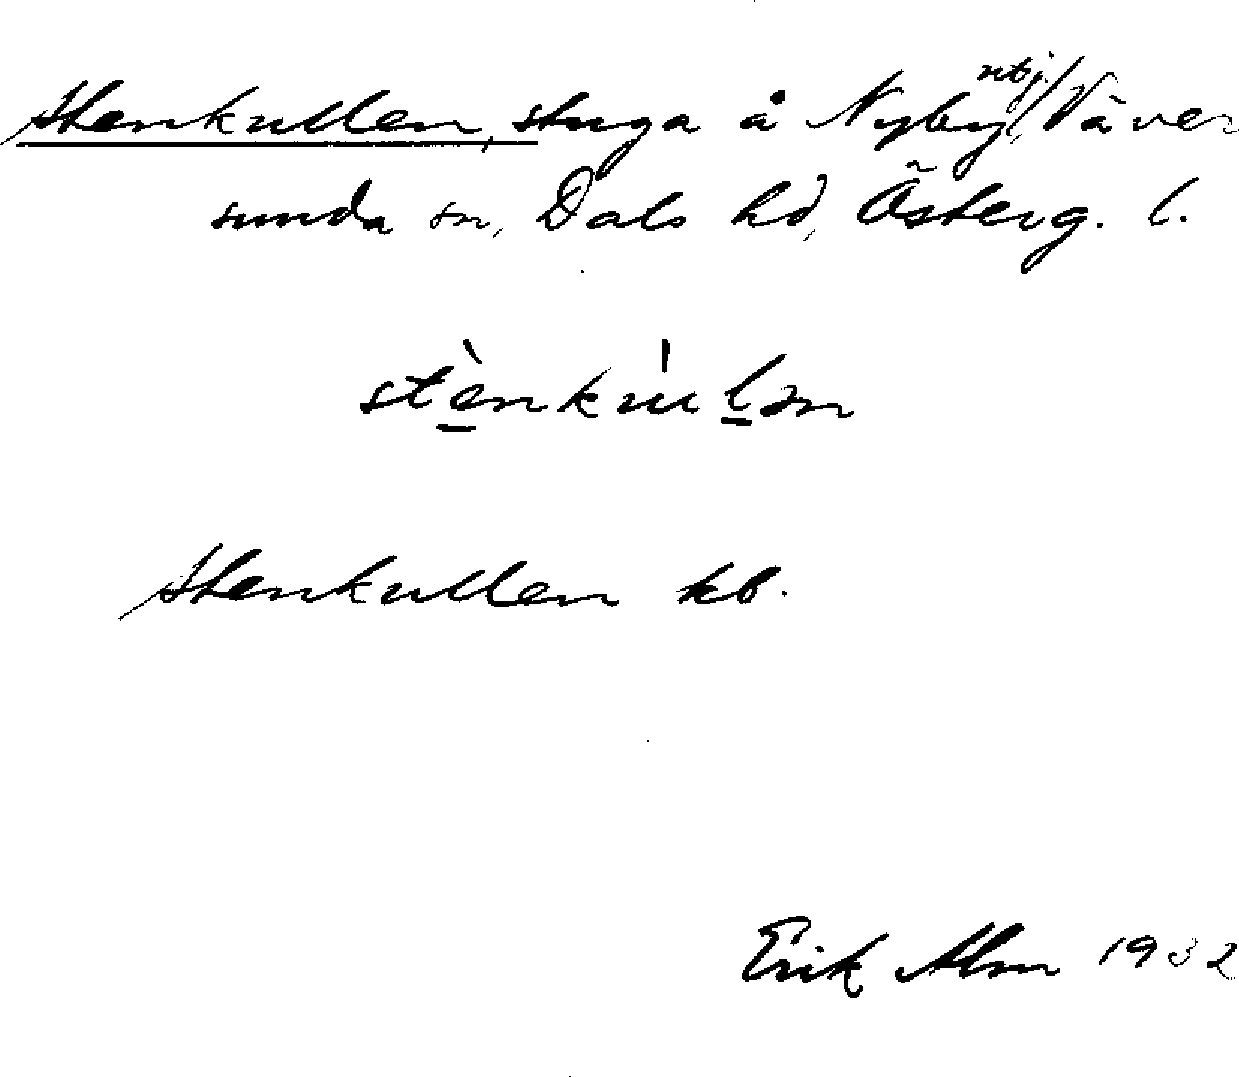 Stenkullen, stuga å Nyby, Väver
sunda sn, Dals hd, Österg. l.
stènkùlən
Stenkullen kb.
Erik Alm 1932